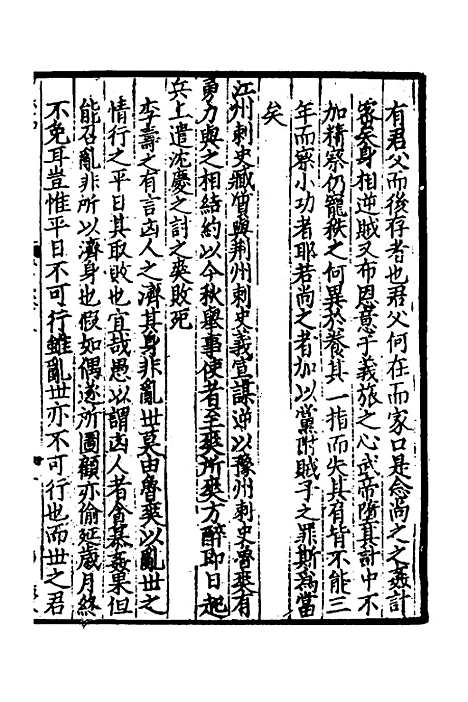 有君父而後存者也君父何在而家口是念尚之之姦計
密矣身相逆賊又布恩意于義旅之心武帝墮其計中不
加精察仍寵秩之何異於養其一指而失其肩背不能三
年而察小功者耶若尚之者加以黨附賊子之罪斯為當
矣
江州刺史臧質與荆州刺史義宣謀逆以豫州刺史魯爽有
勇力與之相結約以今秋舉事使者至爽所爽方醉即日起
兵上遣沈慶之討之爽敗死
李壽之有言凶人之濟其身非亂世莫由魯爽以亂世之
情行之平日其取敗也宜哉愚以謂凶人者會其姦果但
能召亂非所以濟身也假如偶遂所圖顧亦偷延歲月終
不免耳豈惟平日不可行雖亂世亦不可行也而世之君